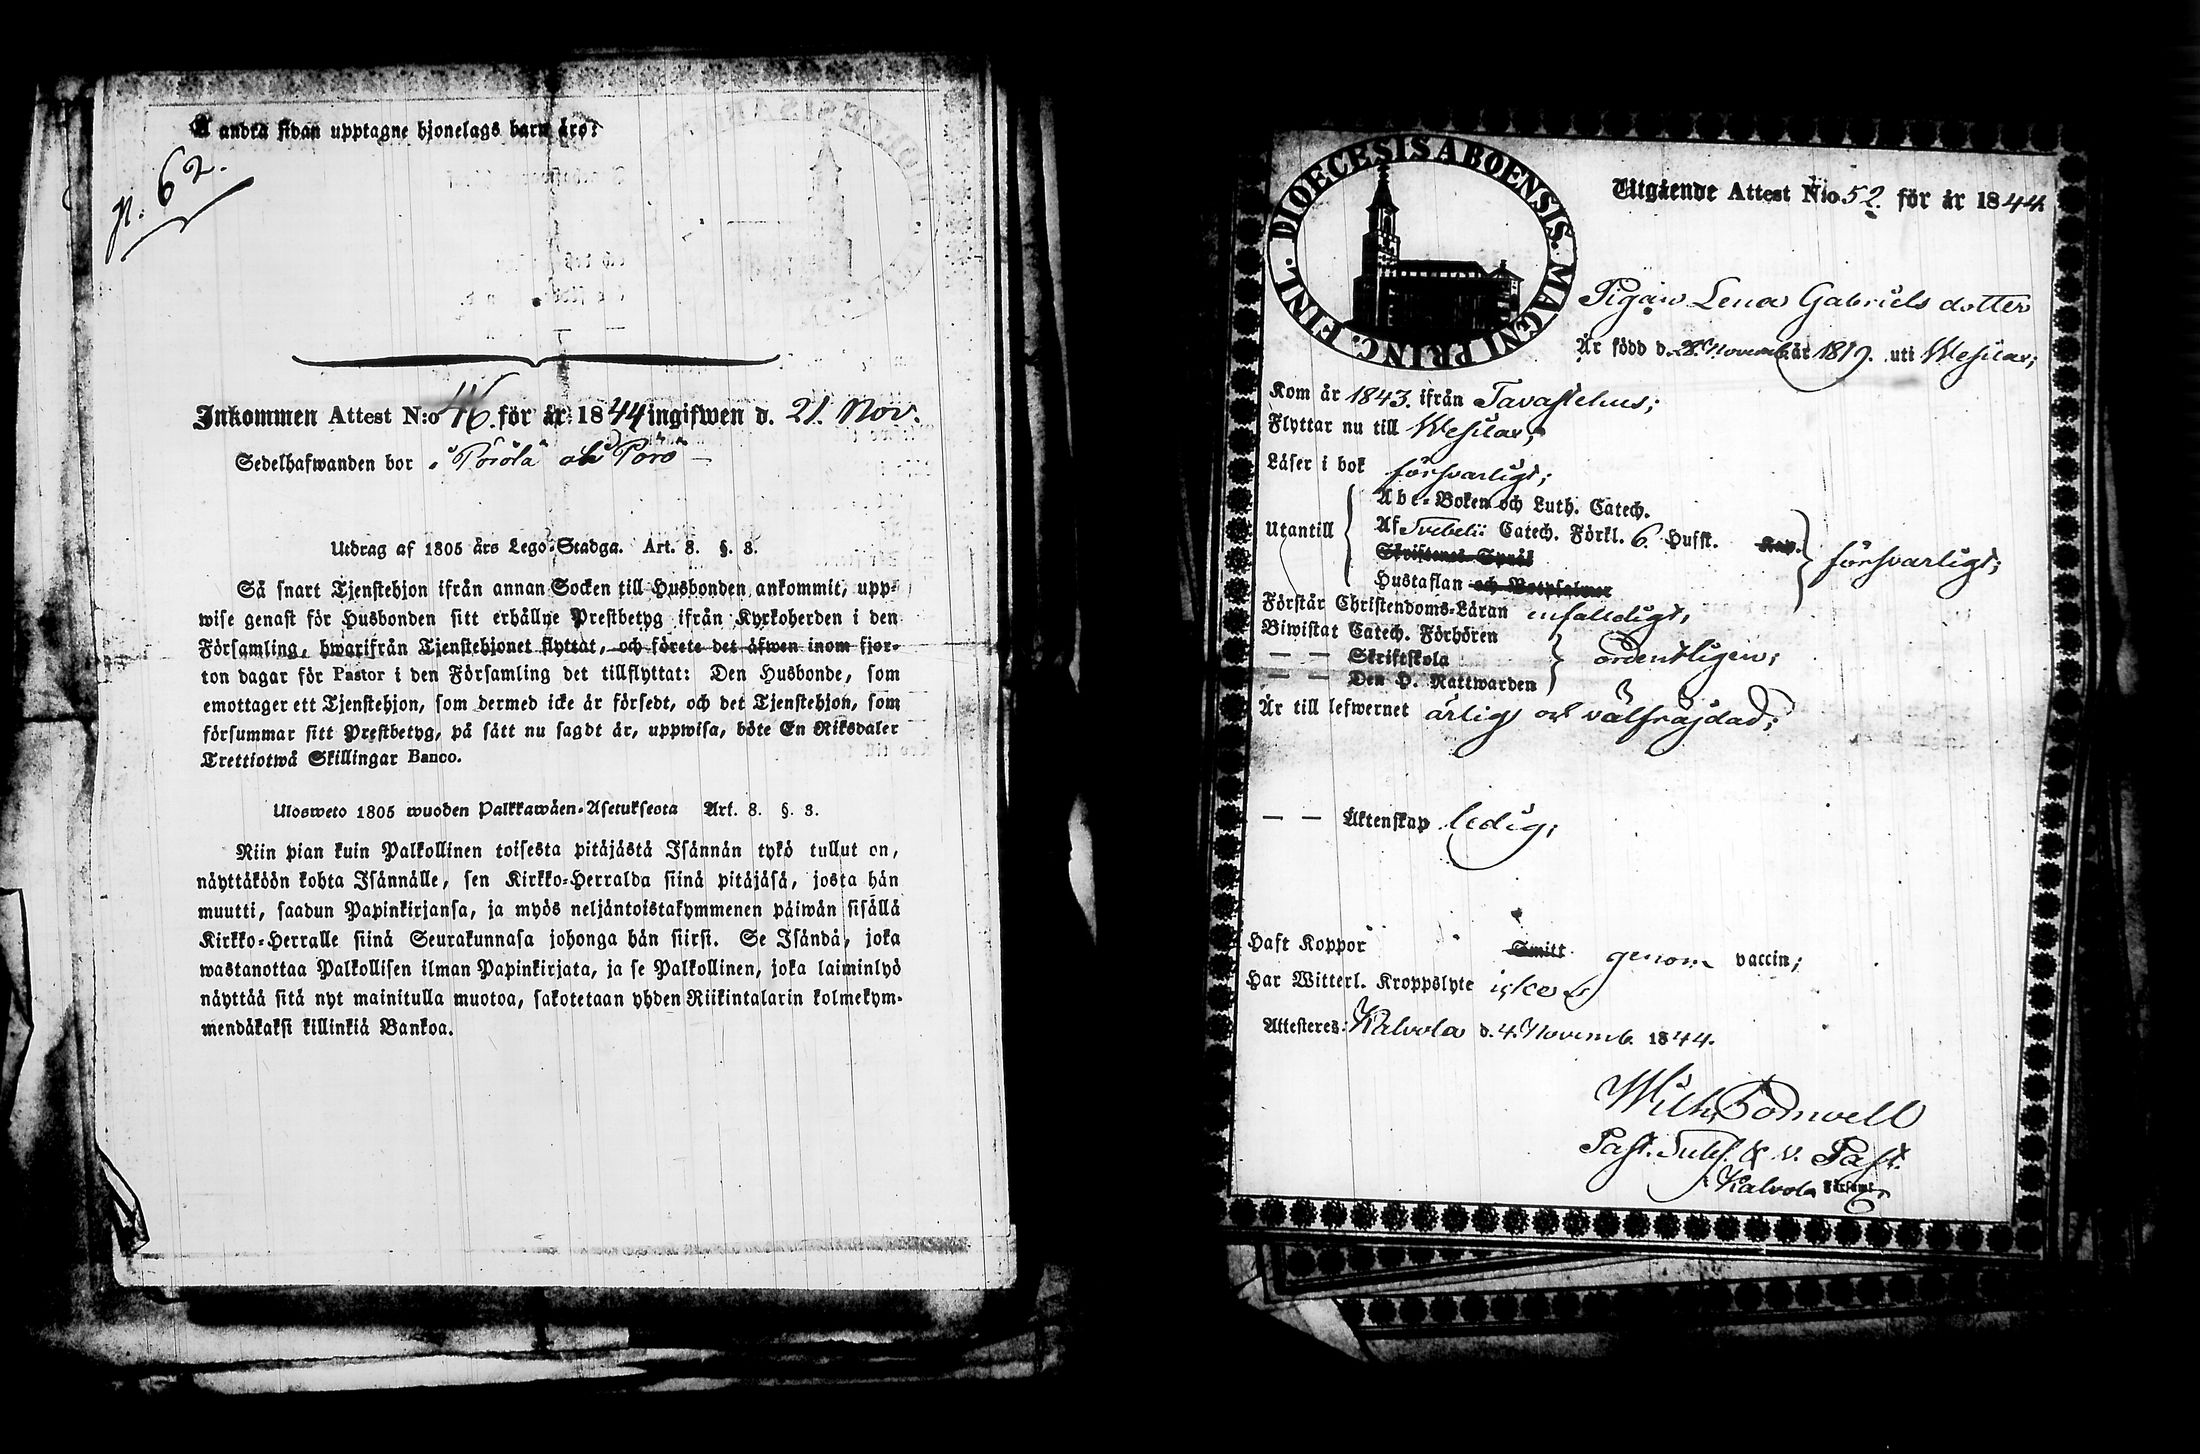 Å andra sidan upptagne hjonelags barn äro:
N. 62.
Inkommen Attest N:o 46. för år 1844 ingifwen d. 21. Nov.
Sedelhafwanden bor i Poröla och Porö —
Utdrag af 1805 års Lego-Stadga. Art. 8. §. 8.
Så snart Tjenstehjon ifrån annan Socken till Husbonden ankommit, upp-
wise genast för Husbonden sitt erhållne Prestbetyg ifrån Kyrkoherden i den
Församling, hwarifrån Tjenstehjonet flyttat, och förete det äfwen inom fjor-
ton dagar för Pastor i den Församling det tillflyttat: Den Husbonde, som
emottager ett Tjenstehjon, som dermed icke är försedt, och det Tjenstehjon, som
försummar sitt Prestbetyg, på sätt nu sagdt är, uppwisa, böte En Riksdaler
Trettiotwå Skillingar Banco.
Ulosweto 1805 wuoden Palkkawäen-Asetuksesta Art. 8. §. 3.
Niin pian kuin Palkollinen toisesta pitäjästä Isännän tykö tullut on,
näyttäköön kohta Isännälle, sen Kirkko-Herralda siinä pitäjäsä, josta hän
muutti, saadun Papinkirjansa, ja myös neljäntoistakymmenen päiwän sisällä
Kirkko-Herralle siinä Seurakunnasa johonga hän siirsi. Se Isändä, joka
wastanottaa Palkollisen ilman Papinkirjata, ja se Palkollinen, joka laiminlyö
näyttää sitä nyt mainitulla muotoa, sakotetaan yhden Riikintalarin kolmekym-
mendäkaksi killinkiä Bankoa.
DIOECESIS ABOENSIS. MAGNI PRINC. FINL.
Utgående Attest N:o 52. för år 1844
Pigan Lena Gabriels dotter
Är född d. 28 Novemb. år 1819. uti Wesilax;
Kom år 1843. ifrån Tavastehus;
Flyttar nu till Wesilax;
Läser i bok försvarligt;
Utantill
Abc-Boken och Luth. Catech.
Af Svebelii Catech. Förkl. 6. Hufst. Kap. försvarligt;
Skriftenes Språk
Hustaflan och Botpsalmer
Förstår Christendoms-Läran enfalldigt,
Biwistat Catech. Förhören
— — Skriftskola ordentligen;
— — Den H. Nattwarden
Är till lefwernet ärlig och välfräjdad;
— — Äktenskap ledig;
Haft Koppor Smitt genom vaccin;
Har Witterl. Kroppslyte icke
Attesteres: Kalvola d. 4. Novemb. 1844.
Wilh.
Past. Subst. & v. Past.
Kalvola Församl.